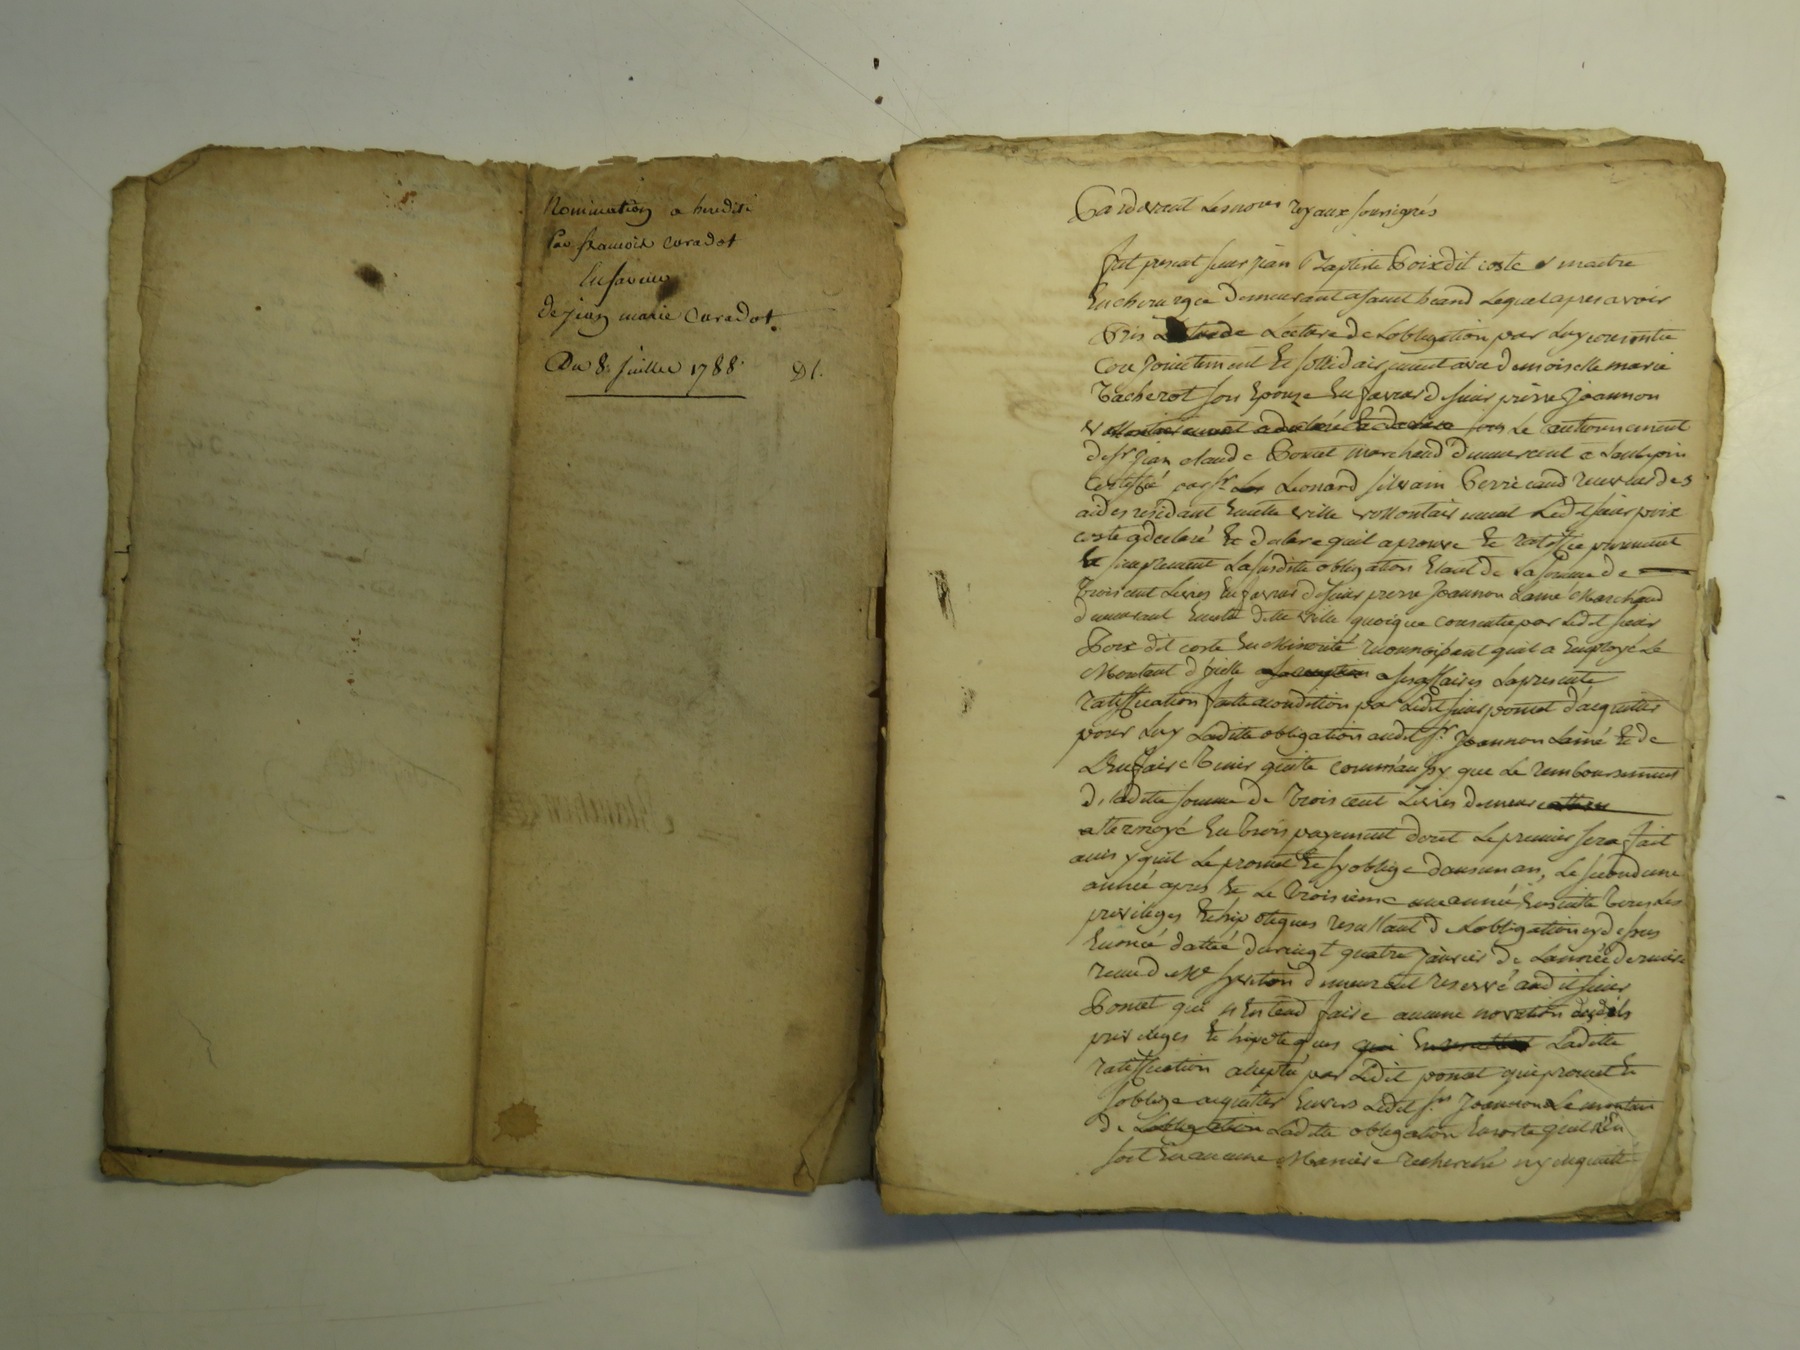 Nomination a heredité
Par françois Curadot
En faveur
de jean marie Curadot.
Du 8. juillet 1788. D I.
Pardevant Les nores royaux soussignés
fut present sieur jean Baptiste Poix dit coste maitre
En chirurgie demeurant a saint heand Lequel apres avoir
Pris Lecture de Lobligation par Luy consentie
Conjointement Et sollidairement avec demoiselle marie
Tacherot son Epouse En faveur de sieur pierre Joannon
sous Le cautionnement
de sr. jean claude Ponset marchand demeurant a
Certiffié par sr. Leonard silvain Perricaud receveur des
aides residant Encette ville vollontairement Ledit sieur poix
coste a declaré Et declare quil aprouve Et ratiffie purement
Et simplement La susditte obligation Etant de La somme de
trois cent Livres En faveur de sieur pierre Joannon Lainé Marchand
demeurant Encette ditte ville quoique consentie par Ledit sieur
Poix dit coste En Minorité reconnoissant quil a Employé Le
Montant d'jcelle a ses affaires La presente
ratiffication faitte a condition par Ledit sieur ponset d'acquitter
pour Luy Laditte obligation audit sr. Joannon Lainé Et de
L'En faire tenir quitte comme aussy que Le remboursement
de laditte somme de trois cent Livres demeure
atermoyé En trois payement dont Le premier sera fait
ainsy quil Le promet Et sy oblige dans un an, Le second une
année apres Et Le troisieme une année Ensuitte tous Les
privileges Et hipoteques resultant de Lobligation cy dessus
Enoncé dattée du vingt quatre janvier de Lannée derniere
recue de Me demeurent reservé audit sieur
Ponset qui n'Entend faire aucune novation desdits
privileges Et hipoteques Laditte
ratiffication acceptée par Ledit ponset qui promet Et
soblige acquitter Envers Ledit sr. Joannon Le montant
de Lobligation Laditte obligation Ensorte quil n'En
soit En aucune Maniere recherché ny inquietté